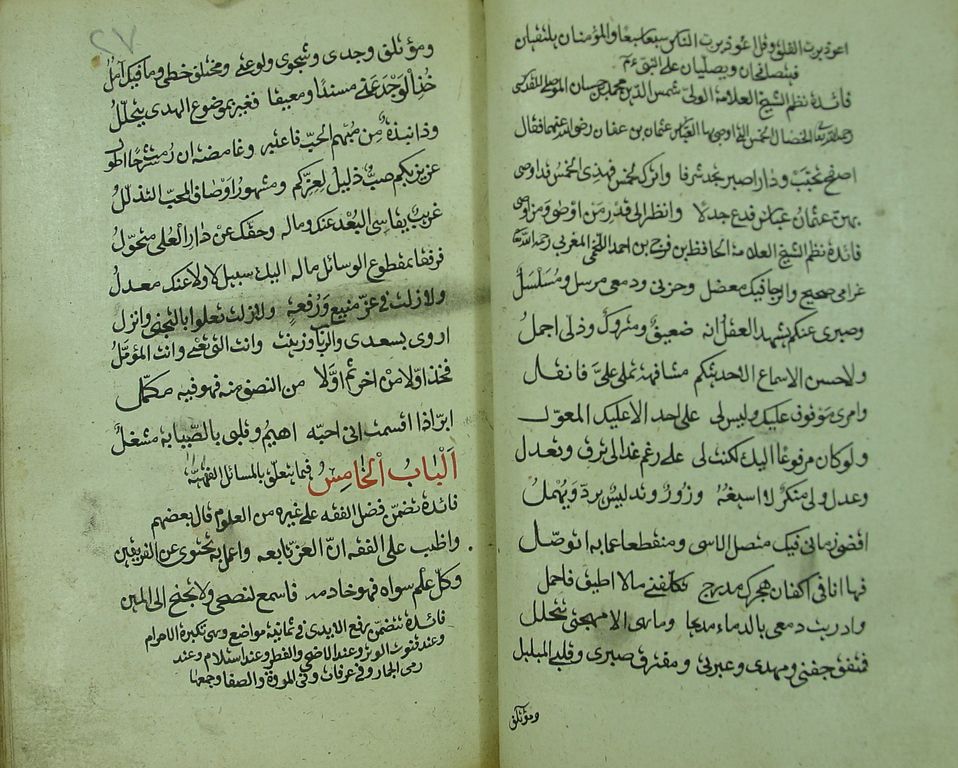 اعوذ برب الفلق وقل اعوذ برب الناس سبعا سبعا والمؤمنان يلتقيان
فيتصافحان ويصليان على النبي
فائدة نظم الشيخ العلامة الولي شمس الدين محمد بن حسان الموصلي المقدسي
الخصال الخمس التي اوصى بها العباس عثمان بن عفان رضي الله عنهما فقال
اصفح تحبب ودار اصبر تجد شرفا واترك لخمس فهذي الخمس قد اوصى
بهن عفان عباس فدع جدلا وانظر الى قدر من اوصى ومن اوصى
فائدة نظم الشيخ العلامة الحافظ بن فرح بن احمد اللخمي المغربي رحمه الله
غرامي صحيح والرجا فيك معضل وحزني ودمعي مرسل ومسلسل
وصبري عنكم يشهد العقل انه ضعيف ومتروك وذلي اجمل
ولا حسن الا سماع الا حديثكم مشافهة تملى علي فانقل
وامري موقوف عليك وليس لي على احد الا عليك المعول
ولو كان مرفوعا اليك لكنت لي على رغم عذالي ترق وتعدل
وعذل عذولي منكر لا اسيغه وزور وتدليس يرد ويهمل
اقضي زماني فيك متصل الاسى ومنقطعا عما به اتوصل
فها انا في اكفان هجرك مدرج تكلفني مالا اطيق فاحمل
واجريت دمعي بالدماء مدبجا وما هي الا مهجتي تتحلل
فمتفق جفني وسهدي وعبرتي ومفترق صبري وقلبي المبلبل
ومؤتلق
٧٢
ومؤتلق وجدي وشجوي ولوعتي ومختلق حظي وما فيك آمل
خذ الوجد عني مسندا ومعنعنا فغيري بموضوع الهدى يتحلل
وذا نبذة من مبهم الحب فاعتبر وغامضه ان رمت شرحا اطول
عزيز بكم صب ذليل بعزكم ومشهور اوصاف المحب التذلل
غريب يقاسي البعد عند وماله وحقك عن دار العلى متحول
فرفقا بمقطوع الوسائل ماله اليك سبيل لا ولا عنك معدل
ولا زلت في عز منيع ورفعة ولا زلت تعلو بالتجني وانزل
اوري بسعدى والرباب وزينب وانت الذي تعنى وانت المؤمل
فخذ اولا من اخر ثم اولا من النصف منه فهو فيه مكمل
ابر اذا اقسمت اني احبه اهيم وقلبي بالصبابة مشغل
الباب الخامس فيما يتعلق بالمسائل الفقهية
فائدة تتضمن فضل الفقه على غيره من العلوم قال بعضهم
واظب على الفقه ان العز تابعه واعمل به تحتوي عن الفريقين
وكل علم سواه فهو خادمه فاسمع لنصحي ولا تجنح الى المين
فائدة تتضمن رفع الايدي في ثمانية مواضع وهي تكبيرة الاحرام
وعند قنوت الوتر وعند الاضحى والفطر وعند استلام وعند
رمى الجمار وفي عرفات وفي المروة والصفا وجمعها